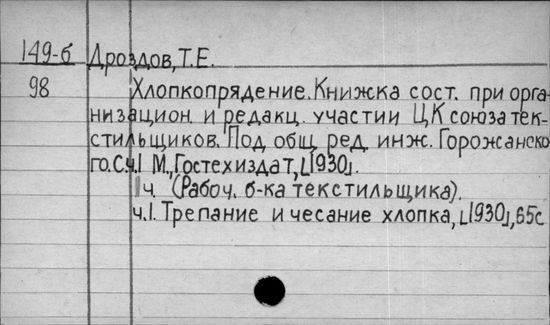 149-б Дроздов, Т.Е.
98 Хлопкопрядение. Книжка сост. при орга-
низацион. и редакц. участии ЦК союза тек-
стильщиков. Под общ. ред. инж. Горожанско-
го. С.ч.1 М., Гостехиздат, [1930].
1ч. (Рабоч. б-ка текстильщика).
ч.1. Трепание и чесание хлопка, [1930], 65с